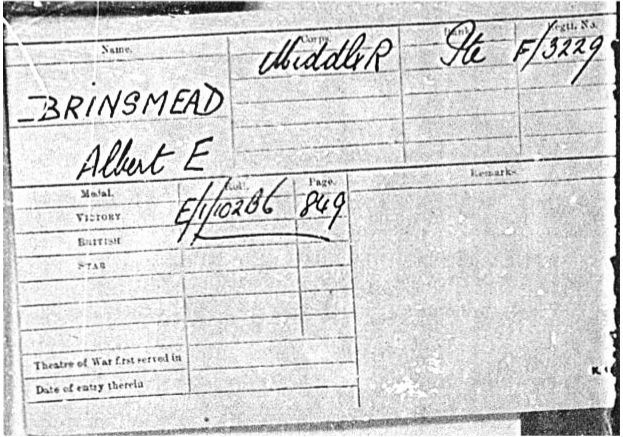 Name. Corps. Rank. Regtl. No.
Middlx R Pte F/3229
BRINSMEAD
Albert E
Medal. Roll. Page. Remarks.
VICTORY E/1/102B6 849
BRITISH
STAR
Theatre of War first served in
Date of entry therein